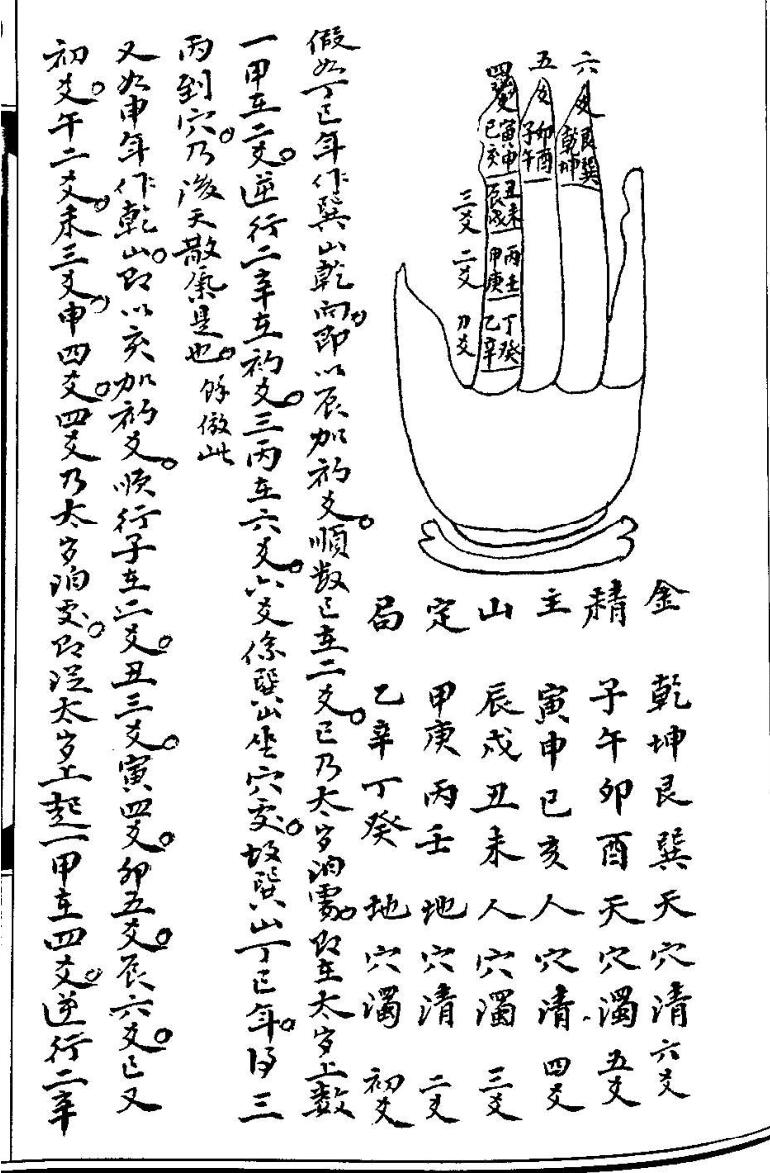 六爻
艮巽
乾坤
五爻
卯酉
子午
四爻
寅申
巳亥
丑未
辰戌
丙壬
甲庚
丁癸
乙辛
三爻
二爻
初爻
金精主山定局
乾坤艮巽天穴清六爻
子午卯酉天穴濁五爻
寅申巳亥人穴清四爻
辰戌丑未人穴濁三爻
甲庚丙壬地穴清二爻
乙辛丁癸地穴濁初爻
假如丁巳年作巽山乾向。即以辰加初爻。順数巳在二爻。巳乃太岁泊處。即在太岁上數
一甲在二爻。逆行二辛在初爻。三丙在六爻。六爻係巽山坐穴處。故巽山丁巳年。得三
丙到穴。乃後天散氣是也。餘倣此
又如申年作乾山。即以亥加初爻。順行子在二爻。丑三爻。寅四爻。卯五爻。辰六爻。巳又
初爻。午二爻。未三爻。申四爻。四爻乃太岁泊處。即從太岁上起一甲在四爻。逆行二辛